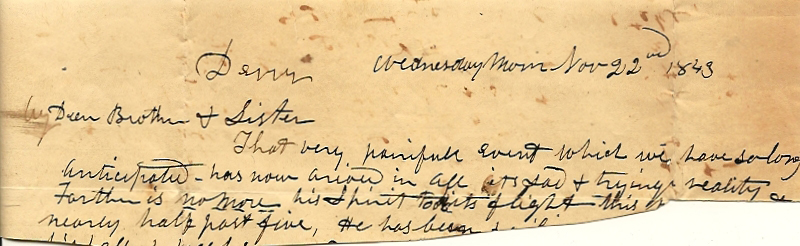 Derry Wednesday Morn Nov 22nd 1843
My Dear Brother & Sister
That very painfull event which we have so long
anticipated - has now arived in all its sad & trying reality
Farther is no more his Spirit took its flight this
nearly half past five, He has been